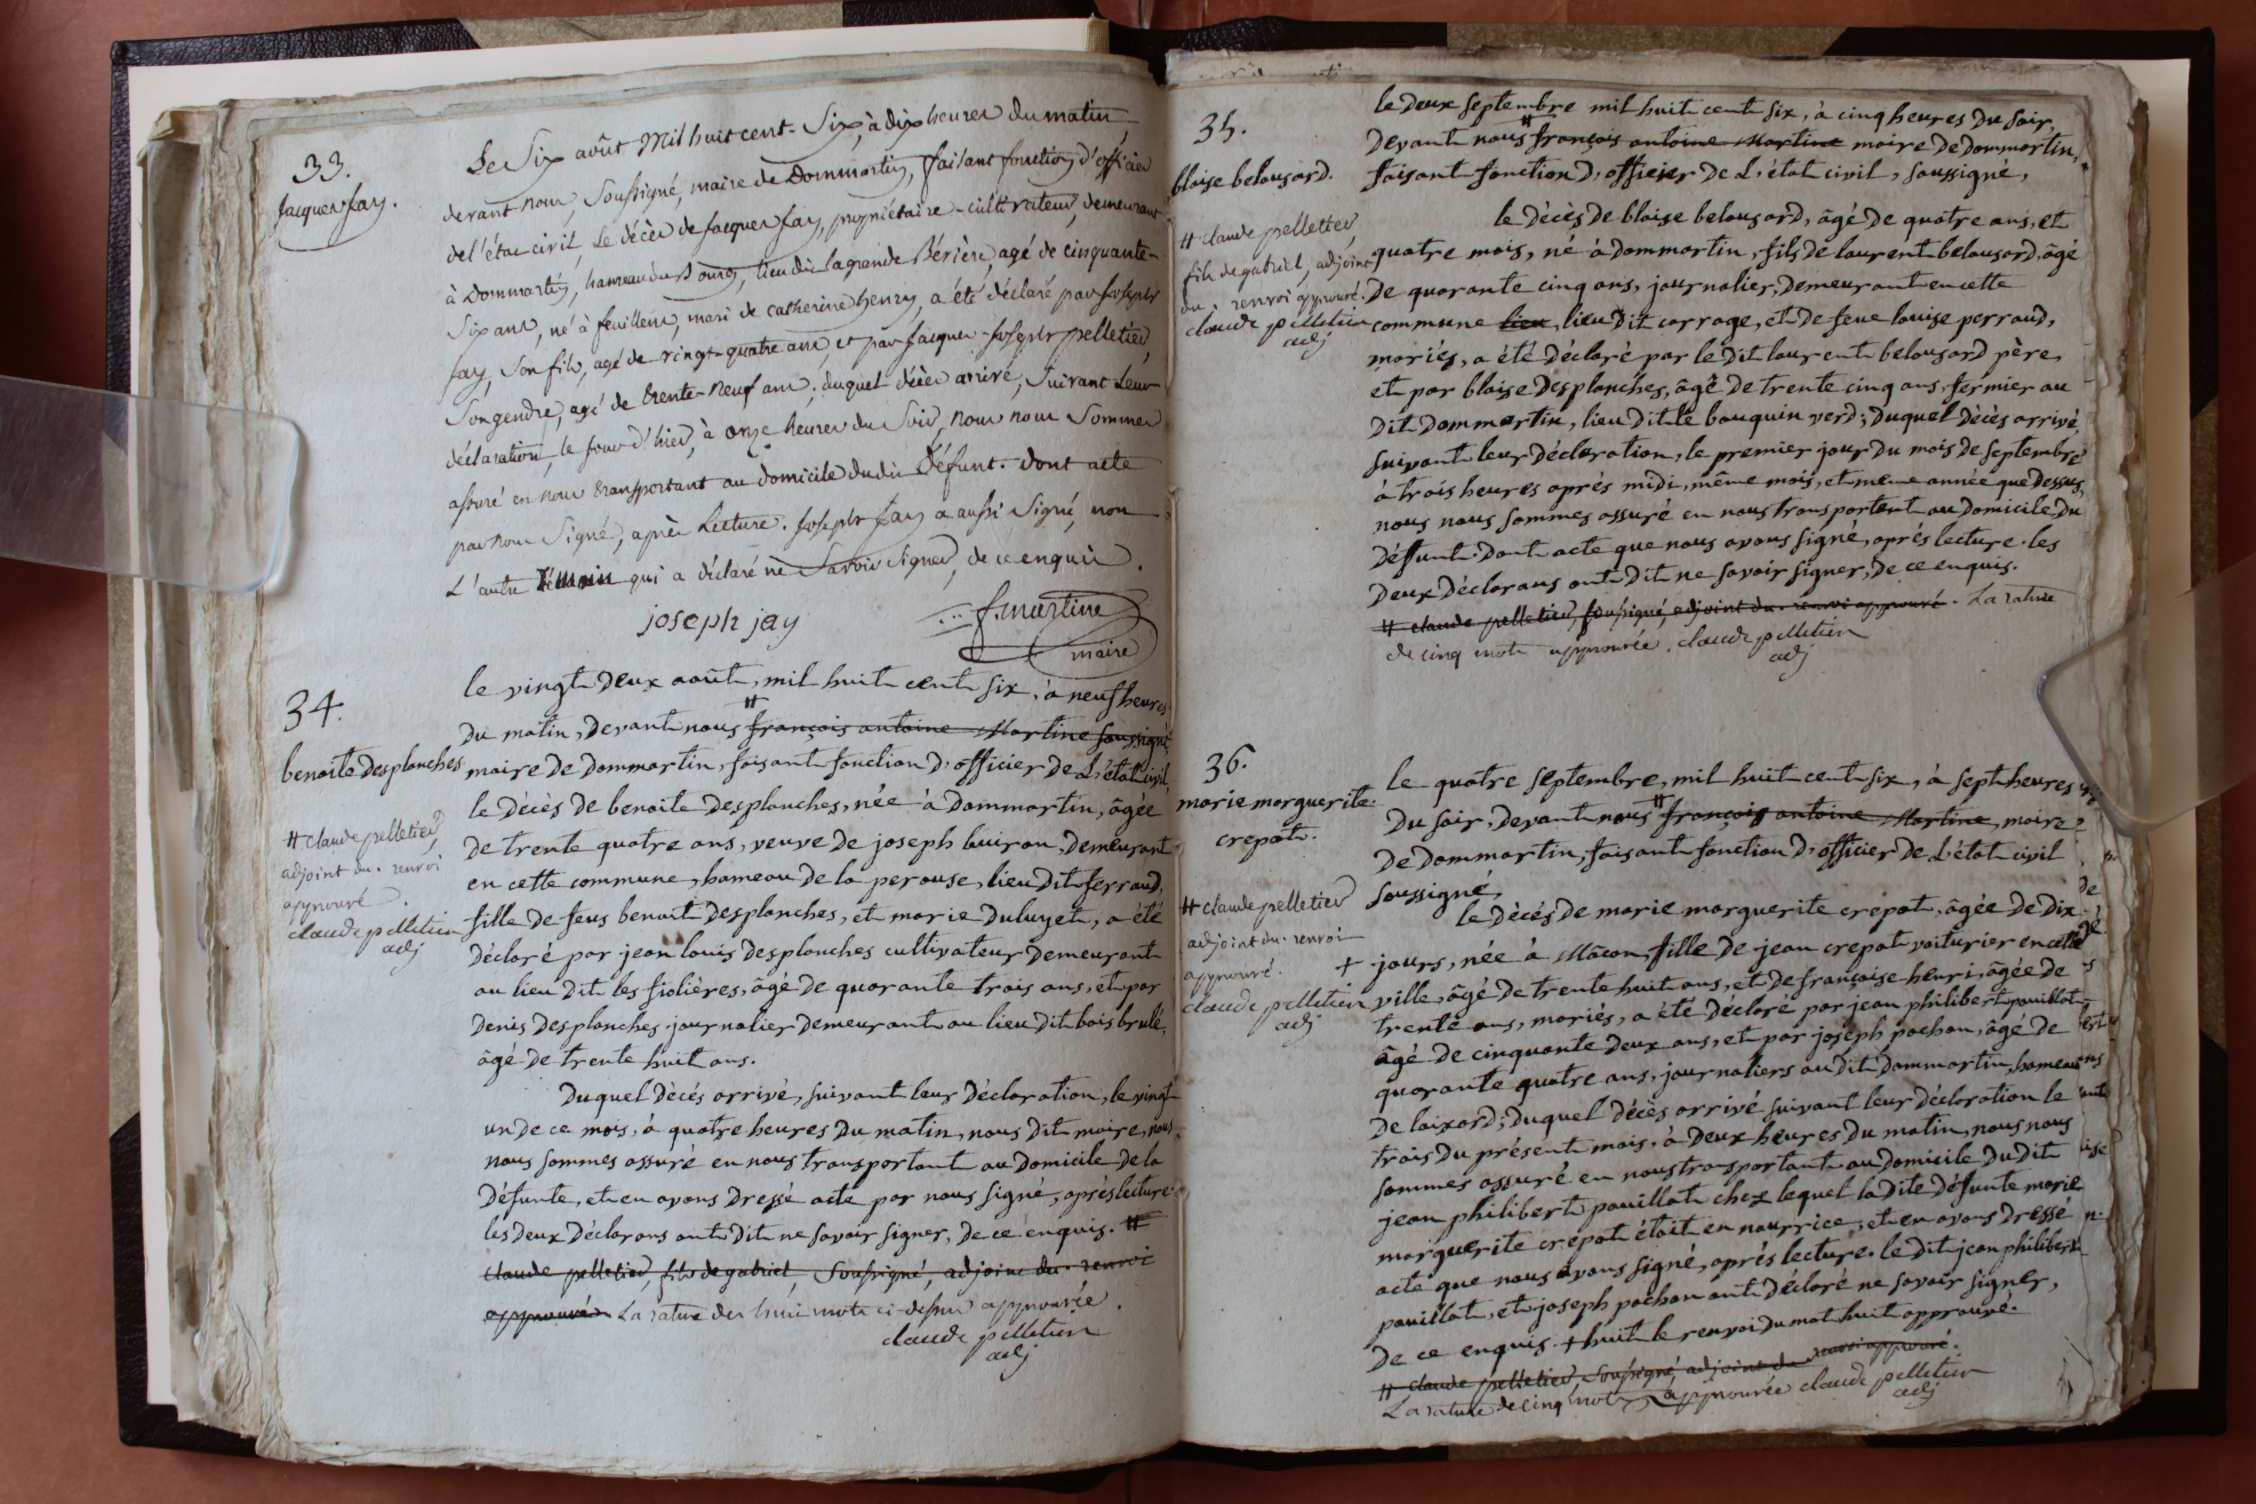 33.
Jacques Jay.
Le Six août Mil huit cent-Six, à dix heures du matin,
devant nous, Soussigné, maire de Dommartin, faisant fonction d'officier
de l'état civil, Le décès de Jacques Jay, propriétaire-cultivateur, demeurant
à Dommartin, hameau du Bourg, lieu dit la grande Bérière, agé de cinquante-
Six ans, né à feuillens, mari de catherine henry, a été déclaré par Joseph
Jay, Son fils, agé de vingt-quatre ans, et par Jacques-Joseph pelletier,
Son gendre, agé de trente-neuf ans; duquel décès arrivé, Suivant Leur
déclaration, le jour d'hier, à onze heures du Soir, nous nous Sommes
assuré en nous transportant au domicile dudit Défunt. Dont acte
par nous Signé, après Lecture. Joseph Jay a aussi Signé, non
L'autre témoin qui a déclaré ne Savoir Signer, de ce enquis.
joseph jay
f. martine
maire
34.
benoite desplanches
# claude pelletier,
adjoint du. renvoi
approuvé.
claude pelletier
adj
le vingt deux août, mil huit cent six, à neuf heures
du matin, devant nous # françois antoine Martine soussigné,
maire de dommartin, faisant fonction d'officier de L'état civil,
le décès de benoite desplanches, née à dommartin, âgée
de trente quatre ans, veuve de joseph buiron, demeurant
en cette commune, hameau de la perouse, lieu dit ferraud,
fille de feus benoit desplanches, et marie duluyet, a été
déclaré par jean louis desplanches cultivateur demeurant
au lieu dit les fiolières, âgé de quarante trois ans, et par
denis desplanches journalier demeurant au lieu dit bois brulé,
âgé de trente huit ans.
duquel décés arrivé, suivant leur déclaration, le vingt
un de ce mois, à quatre heures du matin, nous dit maire, nous
nous sommes assuré en nous transportant au domicile de la
défunte, et en avons dressé acte par nous signé, après lecture.
les deux déclarans ont dit ne savoir signer, de ce enquis. #
claude pelletier, fils de gabriel, Soussigné, adjoint du. renvoi
approuvé. La rature des huit mots ci-dessus approuvée.
claude pelletier
adj
35.
blaise belousard.
# claude pelletier
fils de gabriel, adjoint
du. renvoi approuvé.
claude pelletier
adj
le deux septembre mil huit cent six, à cinq heures du soir,
devant nous # françois antoine Martine maire de dommartin,
faisant fonction d'officier de L'état civil, soussigné,
le décès de blaise belousard, âgé de quatre ans, et
quatre mois, né à dommartin, fils de laurent belousard, âgé
de quarante cinq ans, journalier, demeurant en cette
commune lieu, lieu dit carrage, et de feue louise perraud,
mariés, a été déclaré par le dit laurent belousard père,
et par blaise desplanches, âgé de trente cinq ans, fermier au
dit dommartin, lieu dit le bouquin verd; duquel décès arrivé,
suivant leur déclaration, le premier jour du mois de septembre
à trois heures aprés midi, même mois, et même année que dessus,
nous nous sommes assuré en nous transportant au domicile du
défunt. Dont acte que nous avons signé, aprés lecture. les
deux déclarans ont dit ne savoir signer, de ce enquis.
# claude pelletier, soussigné, adjoint du. renvoi approuvé. La rature
de cinq mots approuvée. claude pelletier
adj
36.
marie marguerite
crepot.
# claude pelletier
adjoint du. renvoi
approuvé.
claude pelletier
adj
le quatre septembre, mil huit cent six, à sept heures
du soir, devant nous # françois antoine Martine, maire
de dommartin, faisant fonction d'officier de L'état civil
soussigné,
le décés de marie marguerite crepot, âgée de dix
+ jours, née à Mâcon, fille de jean crepot voiturier en cette
ville, âgé de trente huit ans, et de françoise henri, âgée de
trente ans, mariés, a été déclaré par jean philibert pouillot
âgé de cinquante deux ans, et par joseph pochon, âgé de
quarante quatre ans, journaliers au dit dommartin, hameau
de loixard; duquel décès arrivé suivant leur déclaration le
trois du présent mois, à deux heures du matin, nous nous
sommes assuré en nous transportant au domicile du dit
jean philibert pouillot chez lequel la dite défunte marie
marguerite crepot étoit en nourrice, et en avons dressé
acte que nous avons signé, aprés lecture. le dit jean philibert
pouillot, et joseph pochon ont déclaré ne savoir signer,
de ce enquis. + huit le renvoi du mot huit approuvé.
# claude pelletier, soussigné, adjoint du renvoi approuvé.
La rature de cinq mots, approuvée claude pelletier
adj